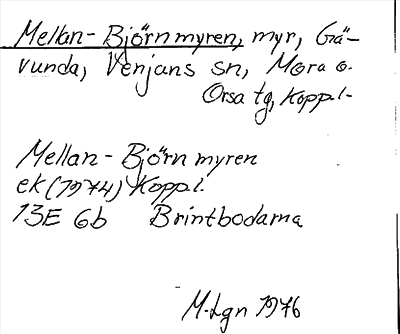 Mellan-Björnmyren, myr, Grä-
vunda, Venjans sn, Mora o.
Orsa tg, Koppl-
Mellan-Björnmyren
ek (1974) Koppl.
13E 6b Brintbodarna
M-Lgn 1976